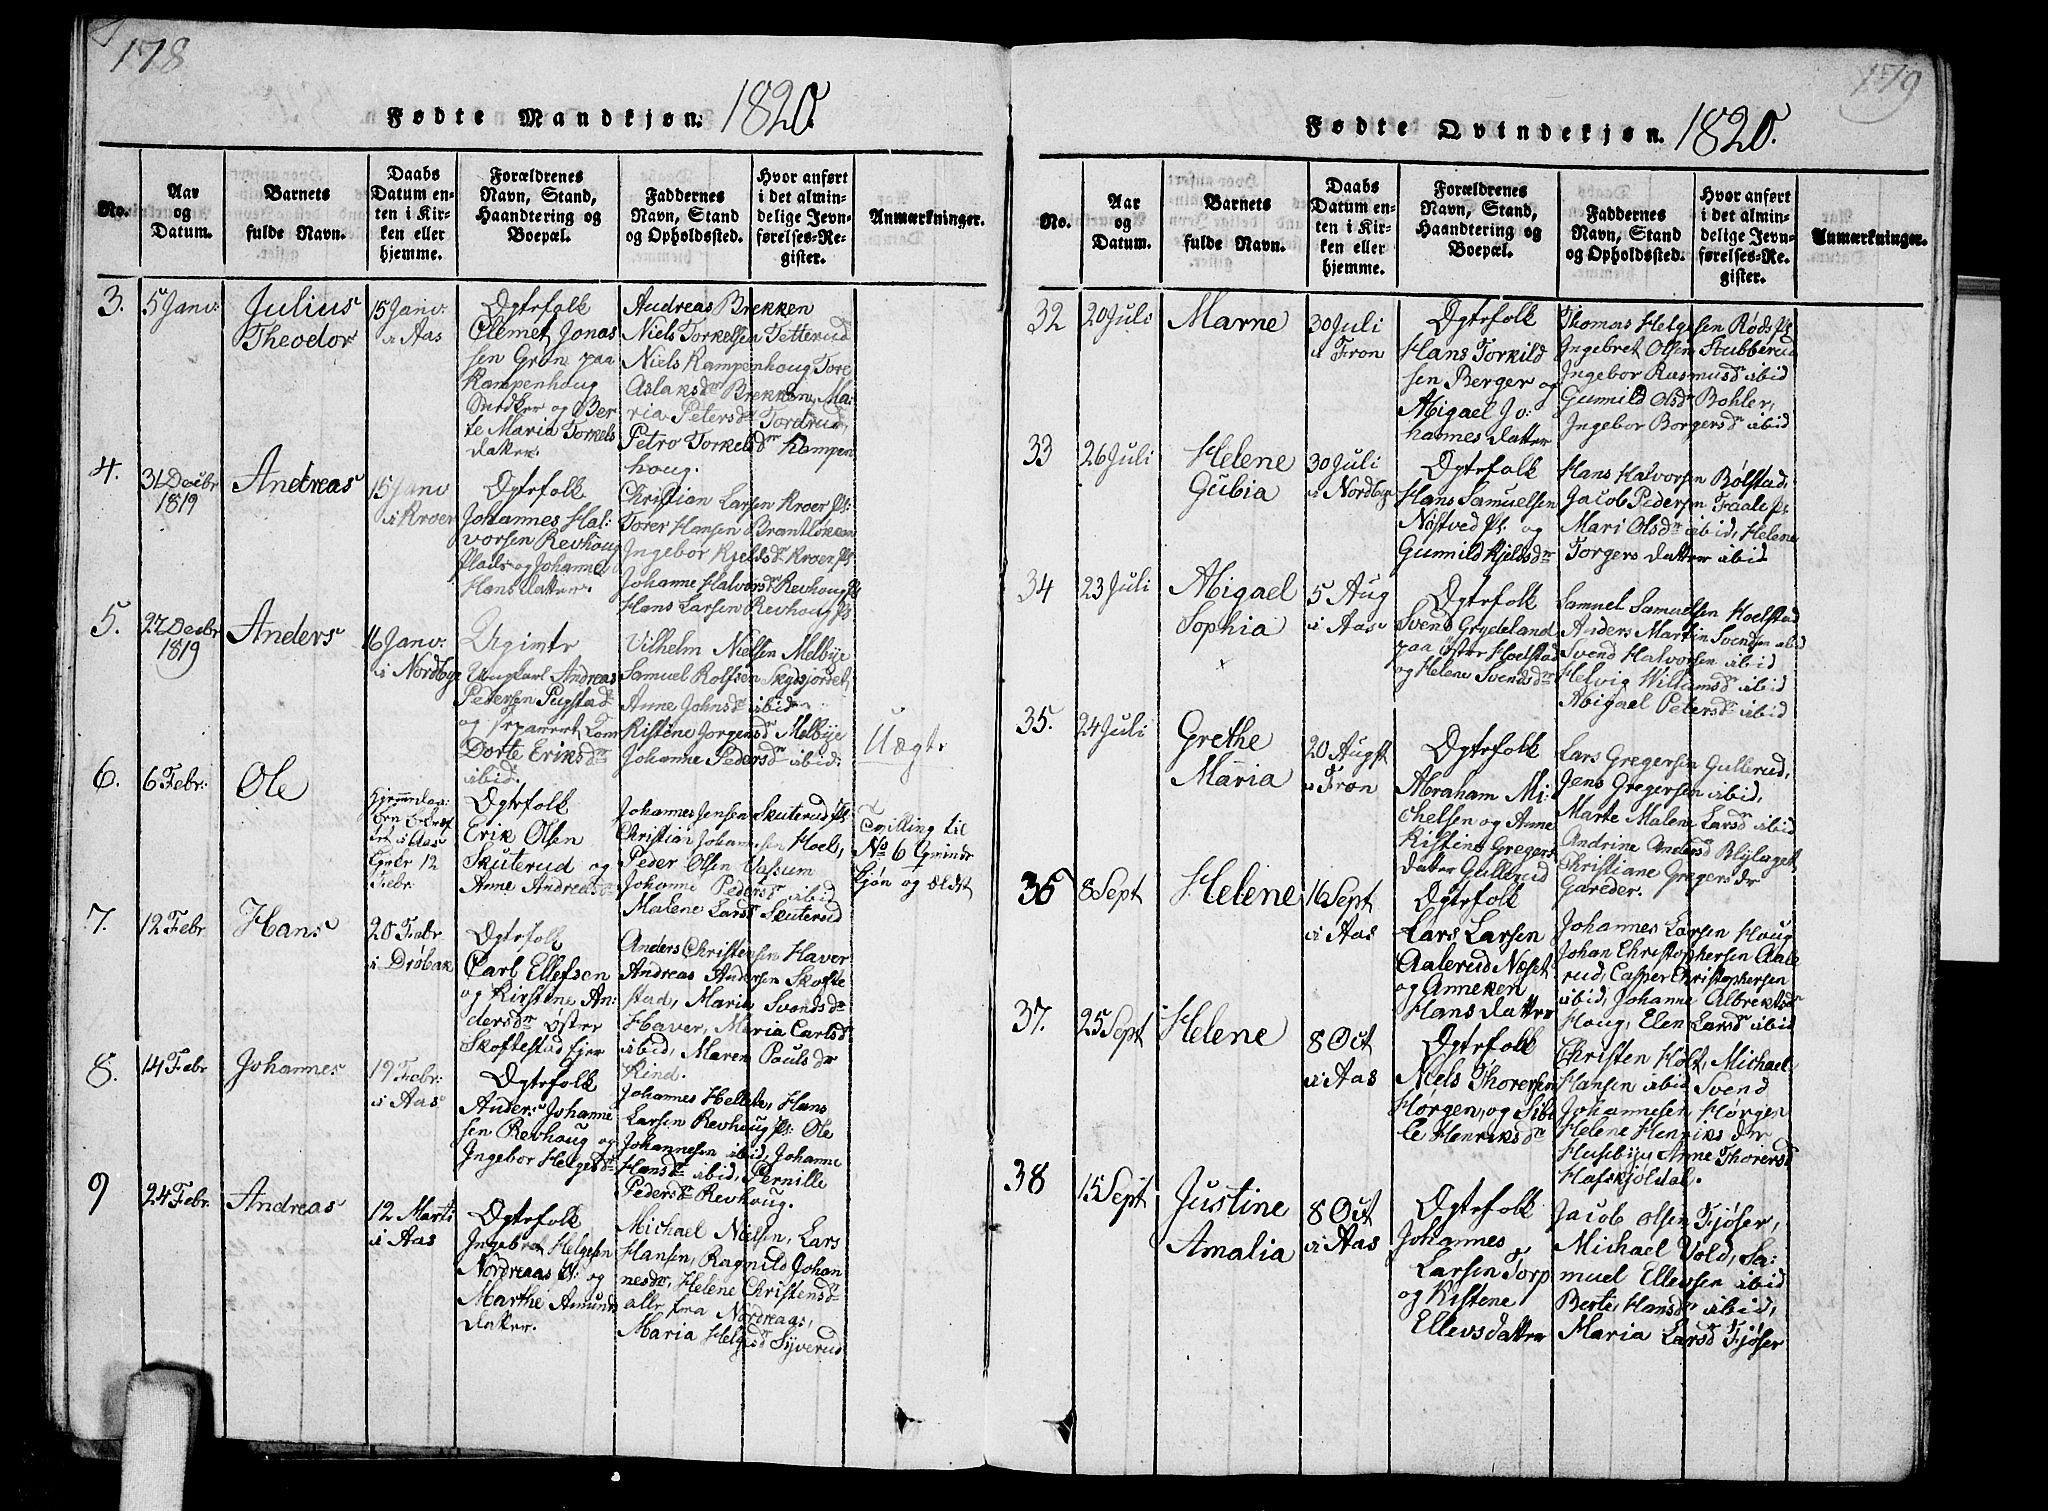 178
Fødte Mandkjøn. 1820.
No.
Aar
og
Datum.
Barnets
fulde Navn.
Daabs
Datum en-
ten i Kir-
ken eller
hjemme.
Forældrenes
Navn, Stand,
Haandtering og
Boepæl.
Faddernes
Navn, Stand
og Opholdssted.
Hvor anført
i det almin-
delige Jevn-
førelses-Re-
gister.
Anmærkninger.
3.
5 Janv:
Julius
Theodor
15 Janv:
i Aas
Ægtefolk
Clemet Jonas
sen Grøn paa
Kampenhoug
Snedker og Ber
te Maria Torkels
datter.
Andreas Brekken
Niels Torkelsen Tetterud
Niels Kampenhoug Tore
Aslaksdr Brekken, Ma:
ria Petersdr Tordrud,
Petro Torkelsdr Kampen
houg.
4.
31 Decbr
1819
Andreas
15 Janv
i Kroer
Ægtefolk
Johannes Hal:
vorsen Revhoug
Plads og Johanne
Hansdatter.
Christian Larsen Kroer Pl:
Torer Hansen Brantløkeen
Ingebor Kjeldsdr Kroer Pl
Johanne Halvorsdr Revhoug Pl
Hans Larsen Revhoug Pl
5.
27 Decbr
1819
Anders
16 Janv:
i Nordbye
Ugivte
Ungkarl Andreas
Pedersen Pugstad
og separert Kone
Dorte Eriksdr
ibid.
Vilhelm Nielsen Melbye
Samuel Rolfsen Skydsjordet,
Anne Johnsdr ibid
Kistene Jorgensdr Melbye
Johanne Pedersdr ibid.
Uægte
6.
6 Febr:
Ole
Hjemmedaa:
ben bekræf
tet i Aas
Kirke 12
Febr
Ægtefolk
Erik Olsen
Skuterud og
Anne Andreasdr
Johannes Jensen Skuterud Pl
Christian Johannesen Hoel,
Peder Olsen Vassum
Johanne Pedersdr ibid
Malene Larsdr Skuterud
Tvilling til
No 6 Qvinde
kjøn og ældst
7.
12 Febr
Hans
20 Febr
i Drøbak
Ægtefolk
Carl Ellefsen
og Kirstine An:
dersdr øster
Skoftestad Ejer
Anders Christensen Haver
Andreas Andersen Skofte
stad, Maria Svendsdr
Haver, Maria Carlsdr
ibid, Maren Paulsdr
Rind.
8.
14 Febr
Johannes
19 Febr:
i Aas
Ægtefolk
Anders Johanne
sen Revhoug og
Ingebor Helgesdr
Johannes Hellete, Hans
Larsen Revhoug Pl: Ole
Johannesen ibid, Johanne
Hansdr ibid, Pernille
Pedersdr Revhoug.
9
24 Febr.
Andreas
12 Marti
i Aas
Ægtefolk
Ingebret Helgesen
Nordreaas Pl: og
Marthe Amunds
datter.
Michael Nielsen, Lars
Hansen, Ragnild Johan
nesdr, Helene Christensdr
alle fra Nordreaas,
Maria Helgesdr Syverud
179
Fødte Qvindekjøn. 1820.
No.
Aar
og
Datum.
Barnets
fulde Navn.
Daabs
Datum en-
ten i Kir-
ken eller
hjemme.
Forældrenes
Navn, Stand,
Haandtering og
Boepæl.
Faddernes
Navn, Stand
og Opholdssted.
Hvor anført
i det almin-
delige Jevn-
førelses-Re-
gister.
Anmærkninger.
32
20 Juli
Marne
30 Juli
i Fron
Ægtefolk
Hans Torkild
sen Berger og
Abigael Jo:
hannes datter
Thomas Helgesen Røds Pl
Ingebret Olsen Stubberud
Ingebor Rasmusdr ibid
Gunnild Olsdr Bohler,
Ingebor Borgersdr ibid
33
26 Juli
Helene
Gubia
30 Juli
i Nordbye
Ægtefolk
Hans Samuelsen
Nøstved Pl. og
Gunnild Kjeldsdr
Hans Halvorsen Bølstad,
Jacob Pedersen Faale Pl
Mari Olsdr ibid, Helene
Torgers datter ibid
34
23 Juli
Abigael
Sophia
x
5 Aug
i Aas
Ægtefolk
Svend Grydeland
paa Øster Hoelstad
og Helene Svendsdr
Samuel Samuelsen Hoelstad
Anders Martin Svendsen ibid
Svend Halvorsen ibid
Helvig Willumsdr ibid
Abigael Petersdr ibid
35.
24 Juli
Grethe
Maria
20 Augst
i Fron
Ægtefolk
Abraham Mi:
chelsen og Anne
Kistine Gregers
datter Gullerud
Lars Gregersen Gullerud,
Jens Gregersen ibid,
Marte Malene Larsdr ibid
Andrine Andersdr Blylaget
Christiane Gregersdr
Gareder.
36
8 Sept
Helene
16 Sept
i Aas
Ægtefolk
Lars Larsen
Aalerud Næset
og Anneken
Hans datter
Johannes Larsen Houg
Johan Christophersen Aale
rud, Casper Christophersen
ibid, Johanne Albrektsdr
Houg, Elen Larsdr ibid
37.
25 Sept
Helene
8 Oct
i Aas
Ægtefolk
Niels Thorersen
Hørgen, og Sibi
le Henriksdr
Christen Holt, Michael
Hansen ibid Svend
Johannesen Hørgen
Helene Henriks dr
Husebye, Anne Thorersd
Hafskjøldal.
38
15 Sept
Justine
Amalia
8 Oct
i Aas
Ægtefolk
Johannes
Larsen Torp
og Kistene
Ellevsdatter
Jacob Olsen Fjøser,
Michael Vold, Sa:
muel Ellevsen ibid
Berte Hansdr ibid,
Maria Larsd Fjøser